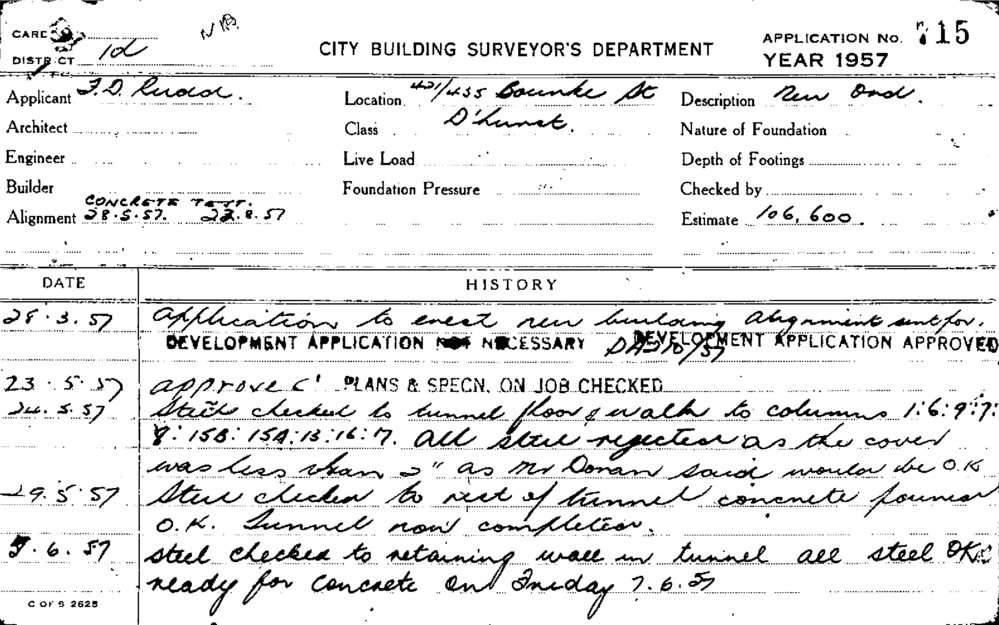 CARD
DISTRICT 1d
CITY BUILDING SURVEYOR'S DEPARTMENT
APPLICATION No. 715
YEAR 1957
Applicant F.D. Rudd. Location 421/435 Bourke St Description New
Architect Class D'hurst. Nature of Foundation
Engineer Live Load Depth of Footings
Builder Foundation Pressure Checked by
CONCRETE TEST.
Alignment 28.5.57. 22.8.57 Estimate 106,600
DATE HISTORY
28.3.57 Application to erect new building alignment sent for.
DEVELOPMENT APPLICATION NOT NECESSARY DEVELOPMENT APPLICATION APPROVED
23.5.57 approved PLANS & SPECN. ON JOB CHECKED
24.5.57 Steel checked to tunnel floor & walls to columns 1:6:9:7:
8:15B:15A:13:16:7. all steel rejected as the cover
was less than 2" as Mr Doran said would be O.K
29.5.57 Steel checked to rest of tunnel concrete
O.K. Tunnel now completed.
5.6.57 steel checked to retaining wall in tunnel all steel OK
ready for concrete on Friday 7.6.57
C OF S 2625